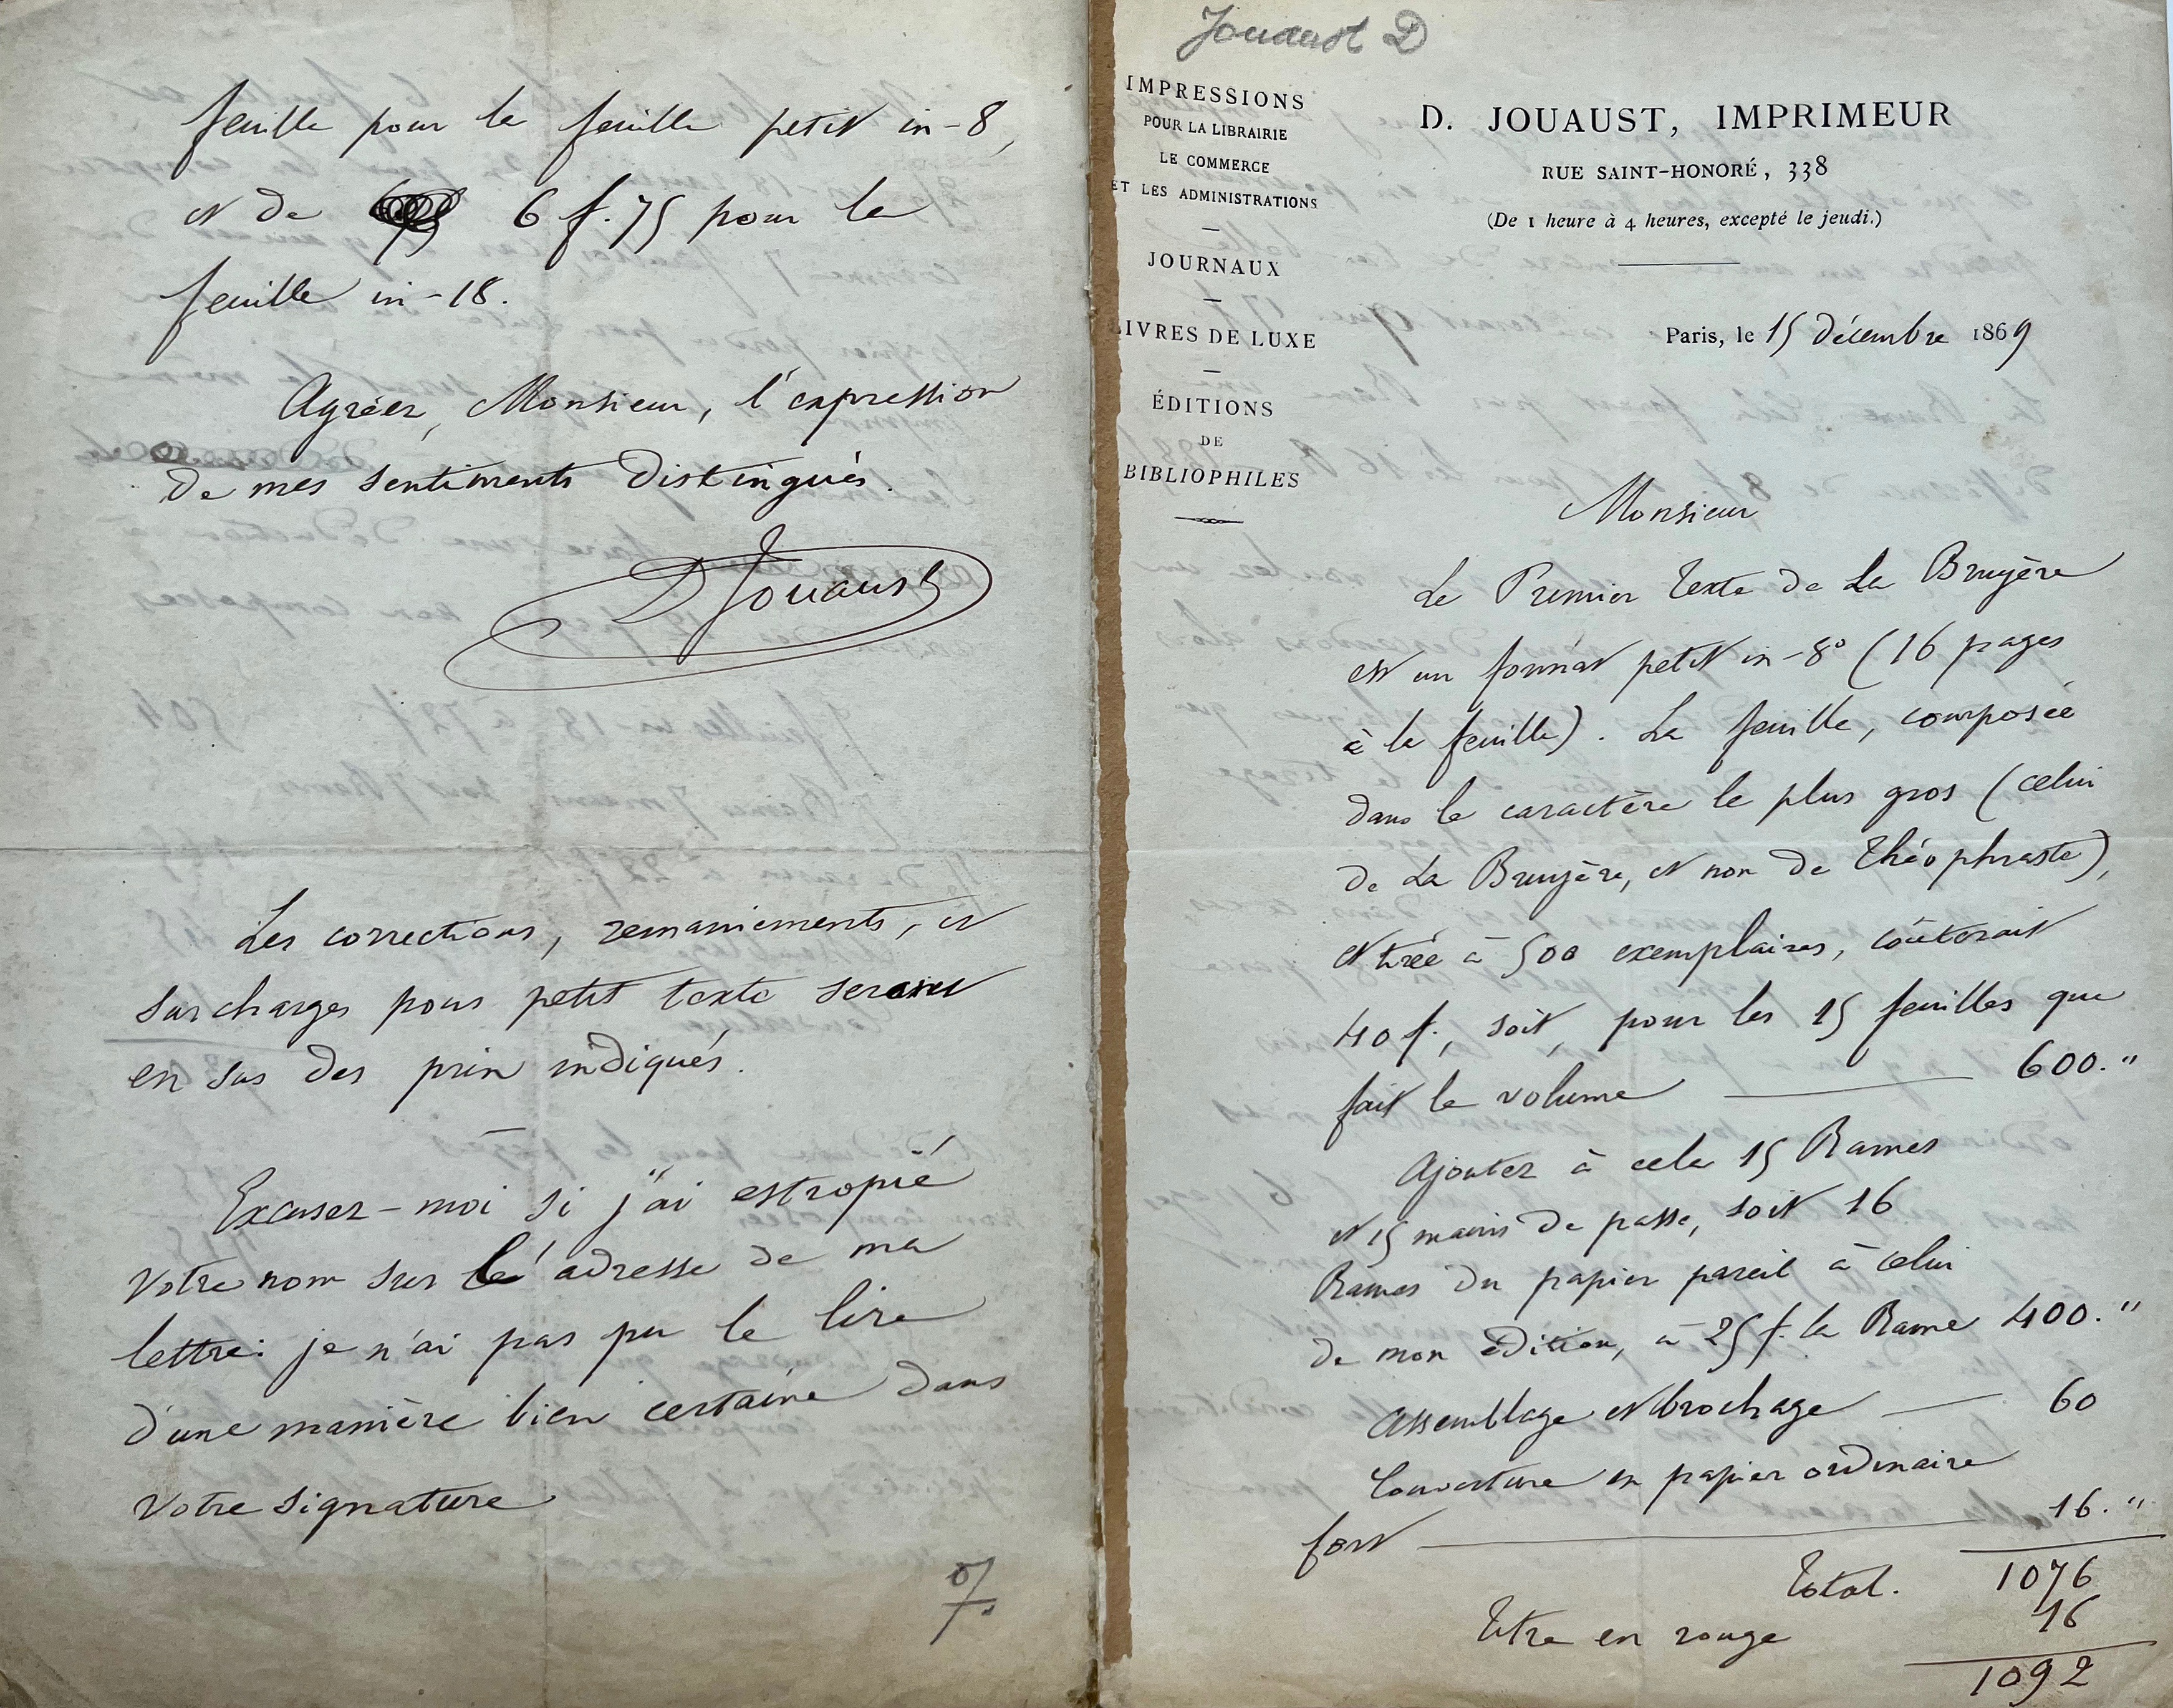 Jouaust D
IMPRESSIONS
POUR LA LIBRAIRIE
LE COMMERCE
ET LES ADMINISTRATIONS
JOURNAUX
LIVRES DE LUXE
ÉDITIONS
DE
BIBLIOPHILES
D. JOUAUST, IMPRIMEUR
RUE SAINT-HONORÉ, 338
(De 1 heure à 4 heures, excepté le jeudi.)
Paris, le 15 décembre 1869
Monsieur
Le Premier Texte de La Bruyère
est un format petit in-8° (16 pages
à la feuille). La feuille, composée
dans le caractère le plus gros (celui
de La Bruyère, et non de Théophraste),
et tirée à 500 exemplaires, coûterait
40 f., soit, pour les 15 feuilles que
fait le volume 600."
Ajoutez à cela 15 Rames
et 15 mains de passe, soit 16
Rames du papier pareil à celui
de mon édition, à 25 f. la Rame 400."
Assemblage et brochage 60
Couverture en papier ordinaire
fort 16."
Total. 1076
Titre en rouge 16
1092
feuille pour la feuille petit in-8,
et de 6 f. 75 pour la
feuille in-18.
Agréez, Monsieur, l'expression
de mes sentiments distingués.
D Jouaust
Les corrections, remaniements, et
surcharges pour petit texte seraient
en sus des prix indiqués.
Excusez-moi si j'ai estropié
votre nom sur l'adresse de ma
lettre: je n'ai pas pu le lire
d'une manière bien certaine dans
votre signature